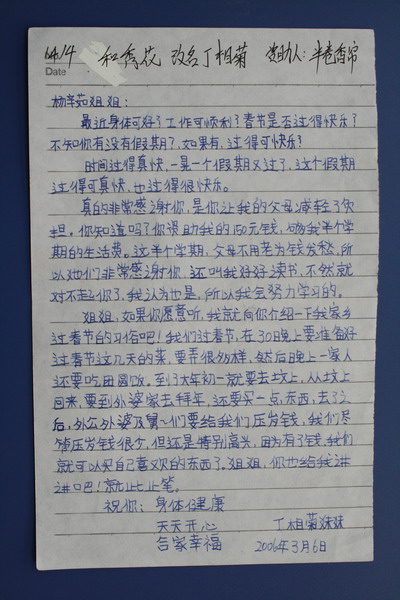 和秀花 改名丁相菊 资助人：半卷香帘
Date
杨幸茹姐姐：
最近身体可好了工作可顺利了春节是否过得快乐？
不知你有没有假期了，如果有，过得可快乐？
时间过得真快，一晃一个假期又过了，这个假期
过得可真快，也过得很快乐。
真的非常感谢你，是你让我的父母减轻了负
担。你知道吗了你资助我的150元钱，够我半个学
期的生活费。这半个学期，父母不用老为钱发愁，所
以她们非常感谢你，还叫我好好读书，不然就
对不起你了，我认为也是，所以我会努力学习的。
姐姐，如果你愿意听，我就向你介绍一下我家乡
过春节的习俗吧！我们过春节，在30日晚上要准备好
过春节这几天的菜，要弄很多样，然后晚上一家人
还要吃团圆饭。到了大年初一就要去坟上，从坟上
回来，要到外婆家去拜年，还要买一点东西，去了之
后，外公外婆及舅舅们要给我们压岁钱，我们尽
管压岁钱很少，但还是特别高兴，因为有了钱，我们
就可以买自己喜欢的东西了。姐姐，你也给我讲
讲吧！就此止笔。
祝你：身体健康
天天开心 丁相菊妹妹
合家幸福 2006年3月6日